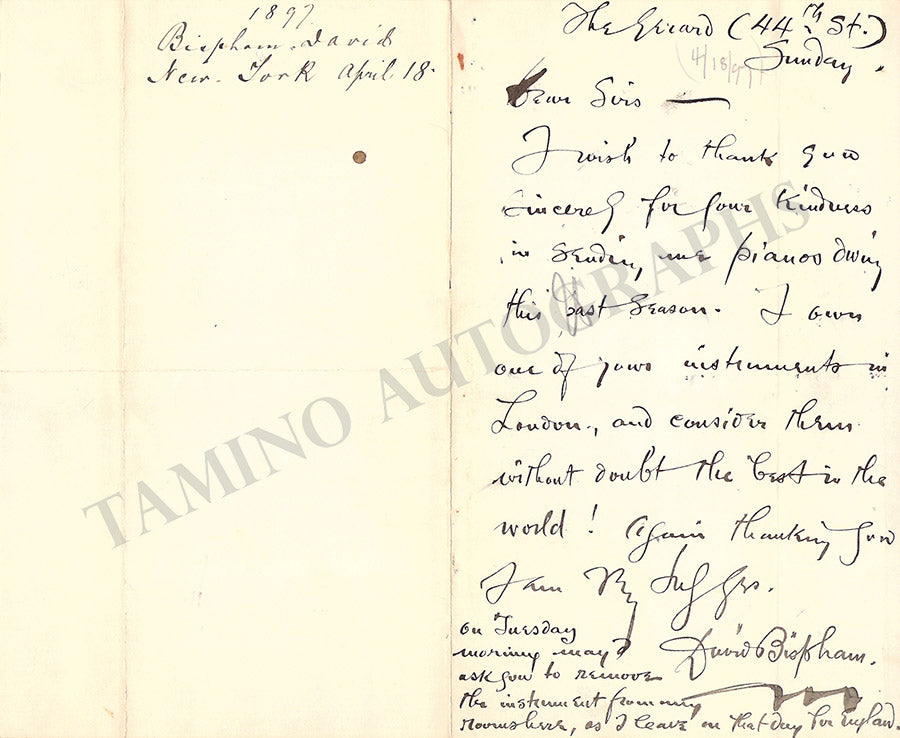 1897
Bispham. David
New. York April 18.
The Gerard (44th St.)
4/18/97
Sunday.
Dear Sirs —
I wish to thank you
sincerely for your kindness
in sending me pianos during
this past season. I own
one of yours instruments in
London., and consider them
without doubt the best in the
world! Again thanking you
I am
David Bispham.
on Tuesday
morning may I
ask you to remove
the instrument from my
rooms here, as I leave on that day for England.
TAMINO AUTOGRAPHS